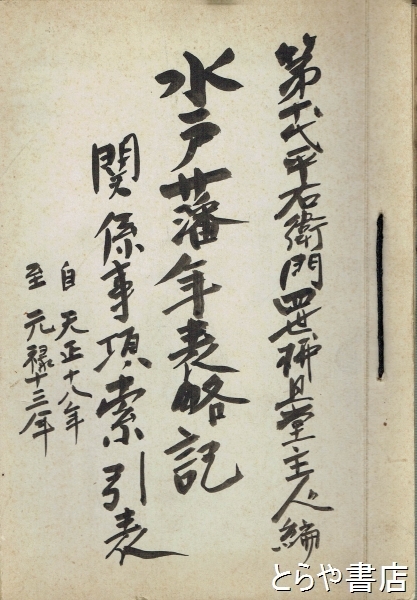 第十代平右衛門四世補旦堂主人編
水戸藩年表略記
関係事項索引表
自天正十八年
至元禄十三年
とらや書店